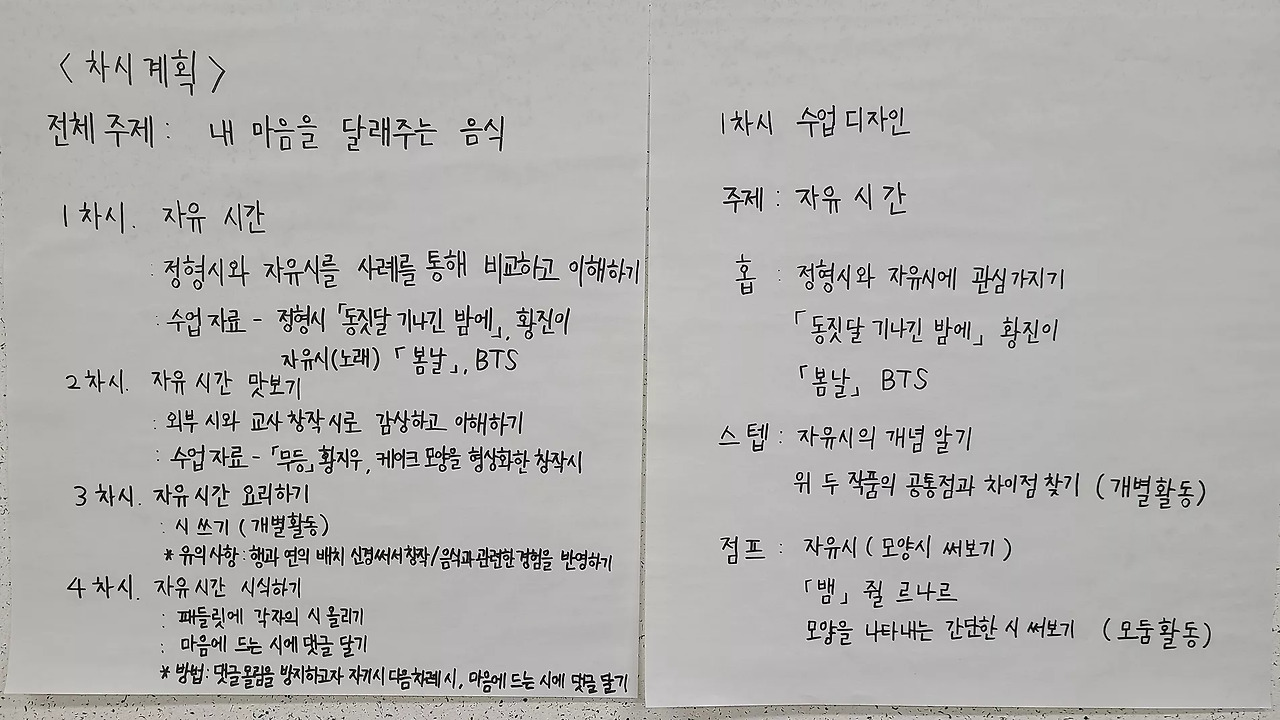 < 차시 계획 >
전체 주제 : 내 마음을 달래주는 음식
1차시. 자유 시간
: 정형시와 자유시를 사례를 통해 비교하고 이해하기
: 수업 자료 - 정형시 「동짓달 기나긴 밤에」, 황진이
자유시(노래) 「봄날」, BTS
2차시. 자유 시간 맛보기
: 외부 시와 교사 창작 시로 감상하고 이해하기
: 수업 자료 - 「무등」 황지우, 케이크 모양을 형상화한 창작시
3차시. 자유시간 요리하기
: 시 쓰기 (개별활동)
* 유의사항 : 행과 연의 배치 신경써서 창작/음식과 관련한 경험을 반영하기
4차시. 자유시간 시식하기
: 패들릿에 각자의 시 올리기
: 마음에 드는 시에 댓글 달기
* 방법 : 댓글 몰림을 방지하고자 자기 시 다음 차례 시, 마음에 드는 시에 댓글 달기
1차시 수업 디자인
주제 : 자유 시간
홉 : 정형시와 자유시에 관심가지기
「동짓달 기나긴 밤에」 황진이
「봄날」 BTS
스텝 : 자유시의 개념 알기
위 두 작품의 공통점과 차이점 찾기 (개별활동)
점프 : 자유시 (모양시 써보기)
「뱀」 쥘 르나르
모양을 나타내는 간단한 시 써보기 (모둠활동)